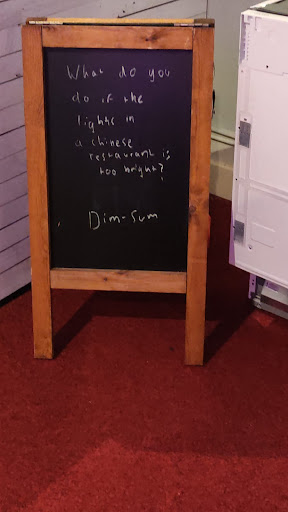 What do you
do if the
lights in
a chinese
restaurant is
too bright?
Dim-Sum